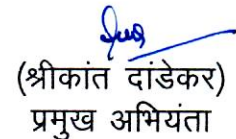 (श्रीकांत दांडेकर)
प्रमुख अभियंता